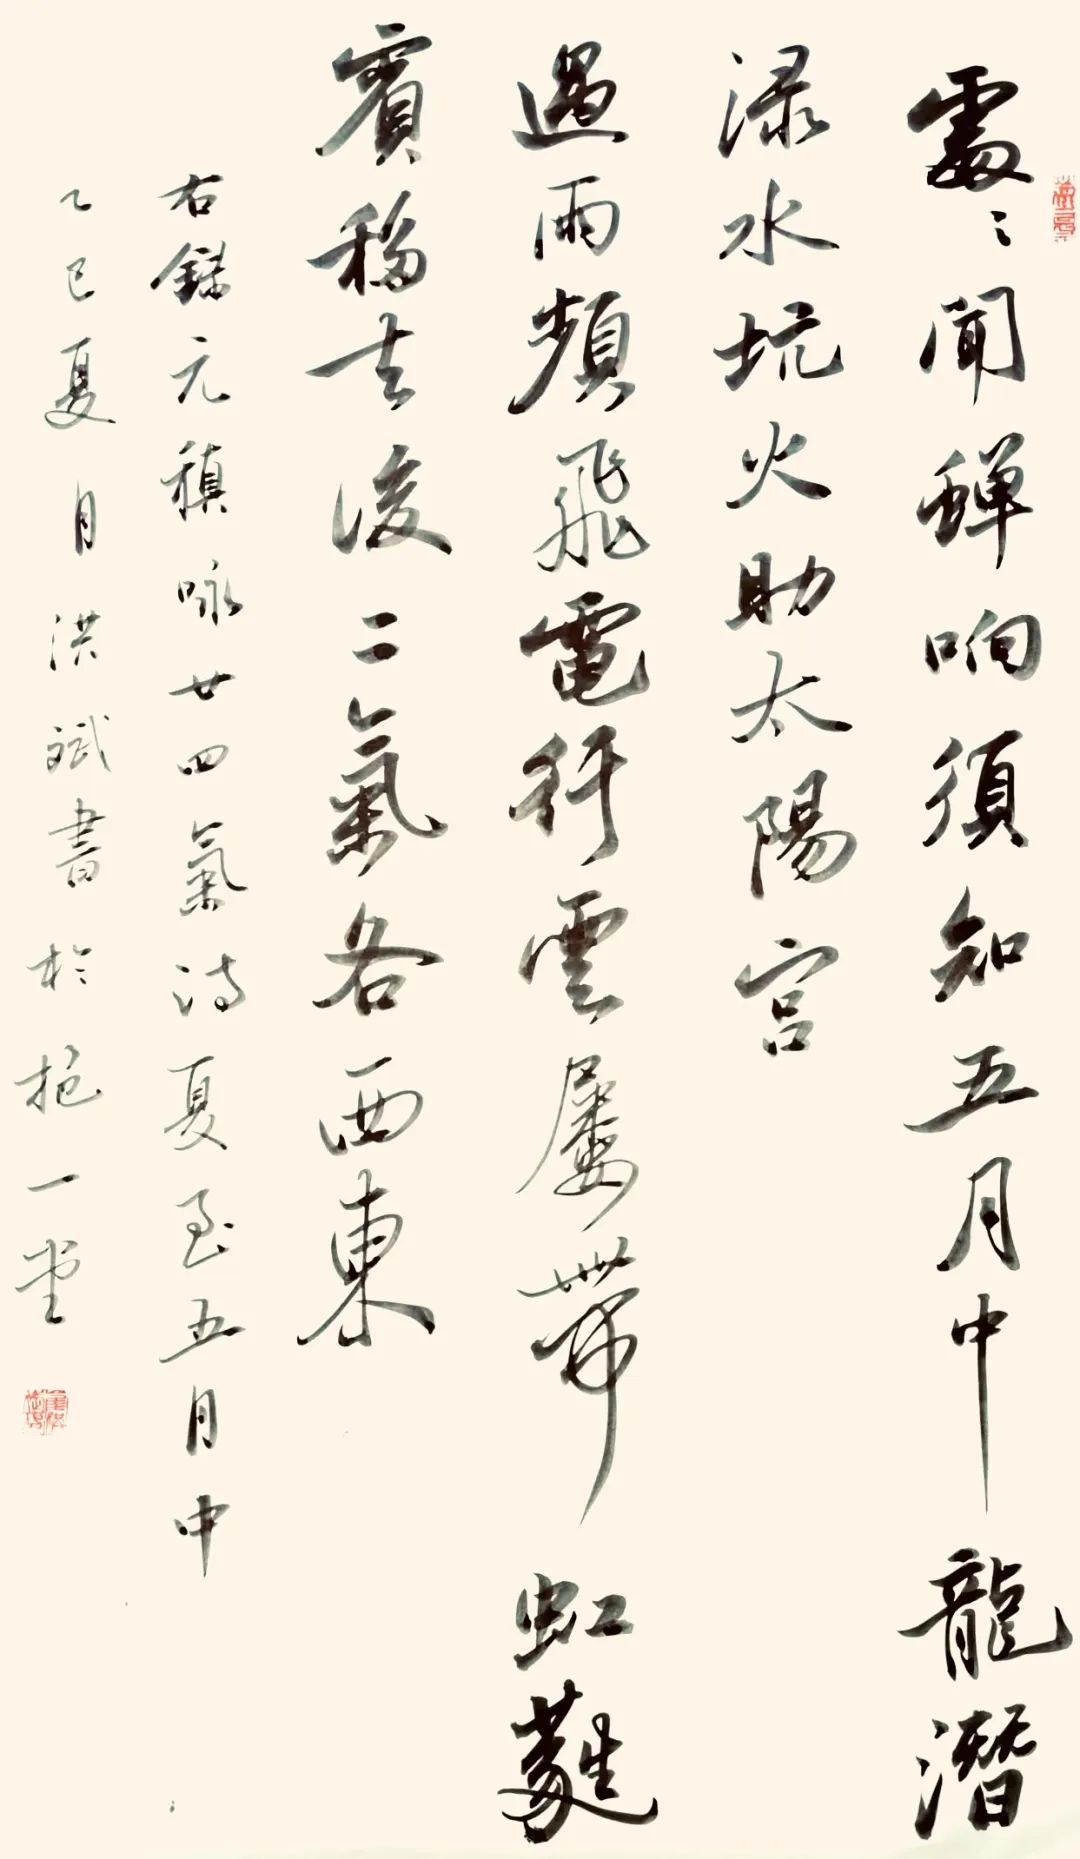 處〻聞蟬响須知五月中龍潛
渌水坑火助太陽宮
過雨頻飛電行雲屢帶虹蕤
賓移去後二氣各西東
右錄元稹咏廿四氣詩夏至五月中
乙巳夏月洪斌書於抱一堂